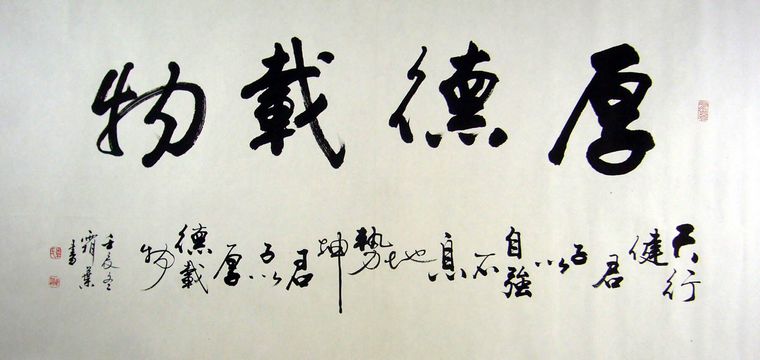 厚德載物
天行健君子以自強不息地勢坤君子以厚德載物
壬辰冬
霜葉
書